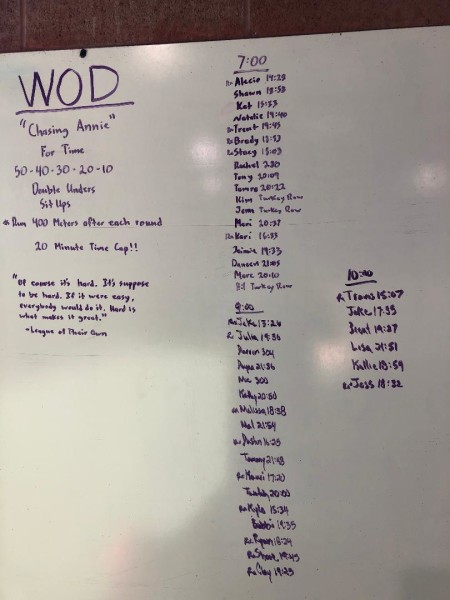 WOD
"Chasing Annie"
For Time
50-40-30-20-10
Double Unders
Sit Ups
Run 400 Meters after each round
20 Minute Time Cap!!
"Of course it's hard. It's suppose
to be hard. If it were easy,
everybody would do it. Hard is
what makes it great."
-League of Their Own
7:00
Rx Alecia 14:25
Shawn 18:58
Kat 15:53
Natalie 19:40
Rx Trent 19:45
Rx Brady
Rx Stacy 15:03
Rachel 230
Tony 20:09
Tamra 20:22
Kim Turkey Row
Jenn Turkey Row
Meri 20:37
Rx Kari 16:33
Jaimie 19:33
Daneen 21:05
Marc 20:10
Turkey Row
9:00
Rx Jake 13:26
Rx Julia 19:36
304
21:36
300
Kelly 20:50
Melissa 18:38
21:54
Rx Dustin 16:25
Tammy 21:48
Rx 17:20
20:00
Rx Kyle 15:34
Bobbi 19:35
Rx Ryan 18:24
Rx 19:43
Rx Clay 19:23
10:00
Rx Travis 15:07
Jake 17:33
Brent 19:27
Lisa 21:51
Kallie 18:54
Rx Joss 18:32